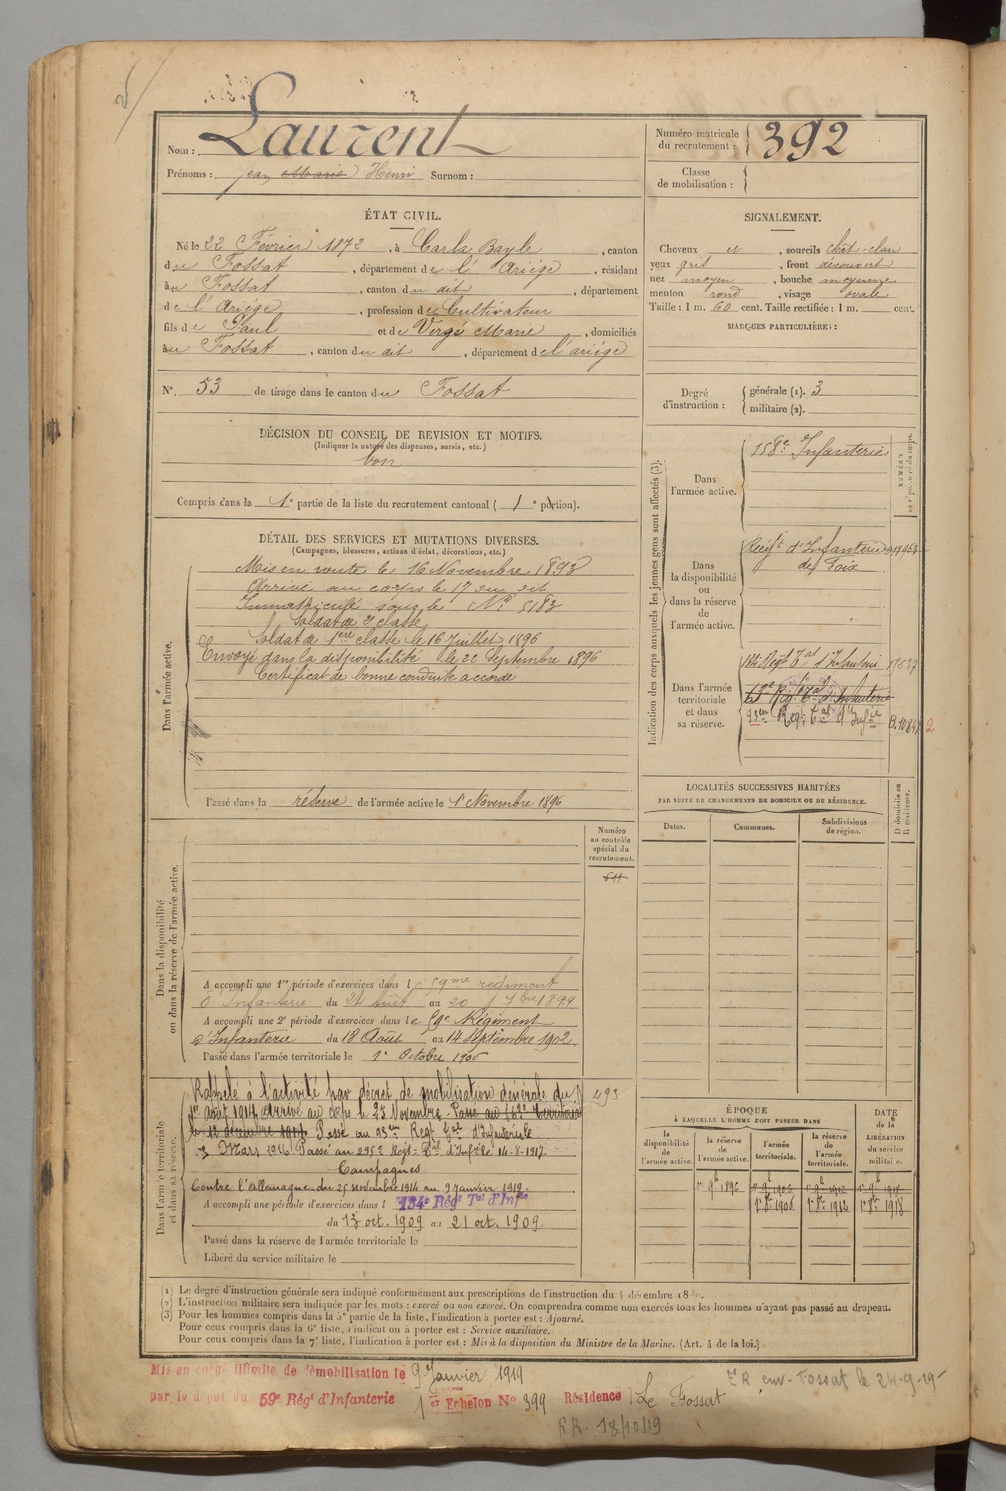 Nom : Laurent
Prénoms : Jean Marie Henri Surnom :
Numéro matricule du recrutement : 392
Classe de mobilisation :
ÉTAT CIVIL.
Né le 22 Février 1872, à Carla Bayle, canton
du Fossat, département de l'Ariége, résidant
au Fossat, canton du dit, département
de l'Ariége, profession de Cultivateur
fils de Paul et de Vergé Marie, domiciliés
au Fossat, canton du dit, département de l'ariége
N° 53 de tirage dans le canton du Fossat
SIGNALEMENT.
Cheveux et, sourcils chât-clair
yeux gris, front découvert
nez moyen, bouche moyenne
menton rond, visage ovale
Taille : 1 m. 60 cent. Taille rectifiée : 1 m. cent.
MARQUES PARTICULIÈRES :
Degré d'instruction : générale (1). 3
militaire (2).
DÉCISION DU CONSEIL DE REVISION ET MOTIFS.
(Indiquer la nature des dispenses, sursis, etc.)
bon
Compris dans la 1e partie de la liste du recrutement cantonal ( 1 e portion).
Indication des corps auxquels les jeunes gens sont affectés (3).
Dans l'armée active.
158e Infanterie
Dans la disponibilité ou dans la réserve de l'armée active.
Régt d'Infanterie
de Foix
Dans l'armée territoriale et dans sa réserve.
Régt Tal d'Infanterie
Régt Tal d'Infanterie
93em Regt Tal d'Infie
DÉTAIL DES SERVICES ET MUTATIONS DIVERSES.
(Campagnes, blessures, actions d'éclat, décorations, etc.)
Dans l'armée active.
Mis en route le 16 Novembre 1893
Arrivé au corps le 17 du dit
Immatriculé sous le No 5183
Soldat de 2e classe
Soldat de 1ère classe le 16 Juillet 1896
Envoyé dans la disponibilité le 22 Septembre 1896
Certificat de bonne conduite accordé
Passé dans la réserve de l'armée active le 1er Novembre 1896
LOCALITÉS SUCCESSIVES HABITÉES
PAR SUITE DE CHANGEMENTS DE DOMICILE OU DE RÉSIDENCE.
Dates. Communes. Subdivisions de région. D domicile ou R résidence.
Numéro au contrôle spécial du recrutement.
611
Dans la disponibilité ou dans la réserve de l'armée active.
A accompli une 1re période d'exercices dans le 59me régiment
d'Infanterie du 24 Août au 20 7bre 1899
A accompli une 2e période d'exercices dans le 59e Régiment
d'Infanterie du 18 Août au 14 septembre 1902
Passé dans l'armée territoriale le 1er Octobre 1906
Dans l'armée territoriale et dans sa réserve.
Rappelé à l'activité par décret de mobilisation générale du
1er Août 1914. Arrivé au corps le 25 Novembre. Passé au Territorial
le 12 décembre 1914. Passé au 93em Regt Tal d'Infanterie
3 Mars 1916. Passé au 295e Régt Tal d'Infie le 14-8-1917.
Campagnes
Contre l'Allemagne du 25 novembre 1914 au 9 Janvier 1919.
A accompli une période d'exercices dans l 134e Régt Tal d'Infie
du 13 oct. 1909 au 21 oct. 1909
Passé dans la réserve de l'armée territoriale le
Libéré du service militaire le
493
ÉPOQUE
À LAQUELLE L'HOMME DOIT PASSER DANS
la disponibilité de l'armée active. la réserve de l'armée active. l'armée territoriale. la réserve de l'armée territoriale.
DATE de la LIBÉRATION du service militaire.
1er 8bre 1906 1er 8bre 1912 1er 8bre 1918
(1) Le degré d'instruction générale sera indiqué conformément aux prescriptions de l'instruction du 4 décembre
(2) L'instruction militaire sera indiquée par les mots : exercé ou non exercé. On comprendra comme non exercés tous les hommes n'ayant pas passé au drapeau.
(3) Pour les hommes compris dans la 5e partie de la liste, l'indication à porter est : Ajourné.
Pour ceux compris dans la 6e liste, l'indication à porter est : Service auxiliaire.
Pour ceux compris dans la 7e liste, l'indication à porter est : Mis à la disposition du Ministre de la Marine. (Art. 4 de la loi.)
Mis en congé illimité de démobilisation le 9 Janvier 1919
par le dépôt du 59e Régt d'Infanterie
1er Echelon No 399 Résidence Le Fossat
R.R. 18/10/19